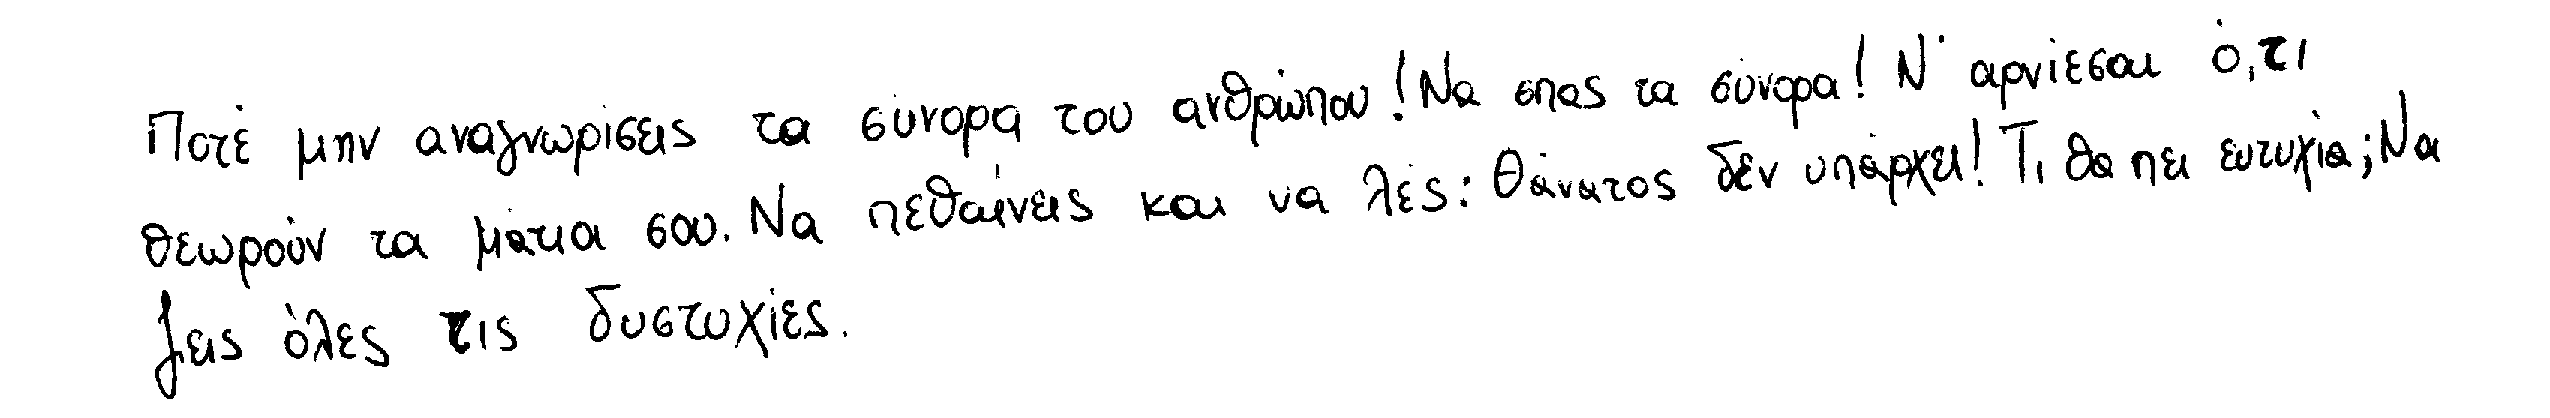 Ποτέ μην αναγνωρίσεις τα σύνορα του ανθρώπου! Να σπας τα σύνορα! Ν' αρνιέσαι ό,τι
θεωρούν τα μάτια σου. Να πεθαίνεις και να λές: Θάνατος δεν υπάρχει! Τι θα πει ευτυχία; Να
ζεις όλες τις δυστυχίες.